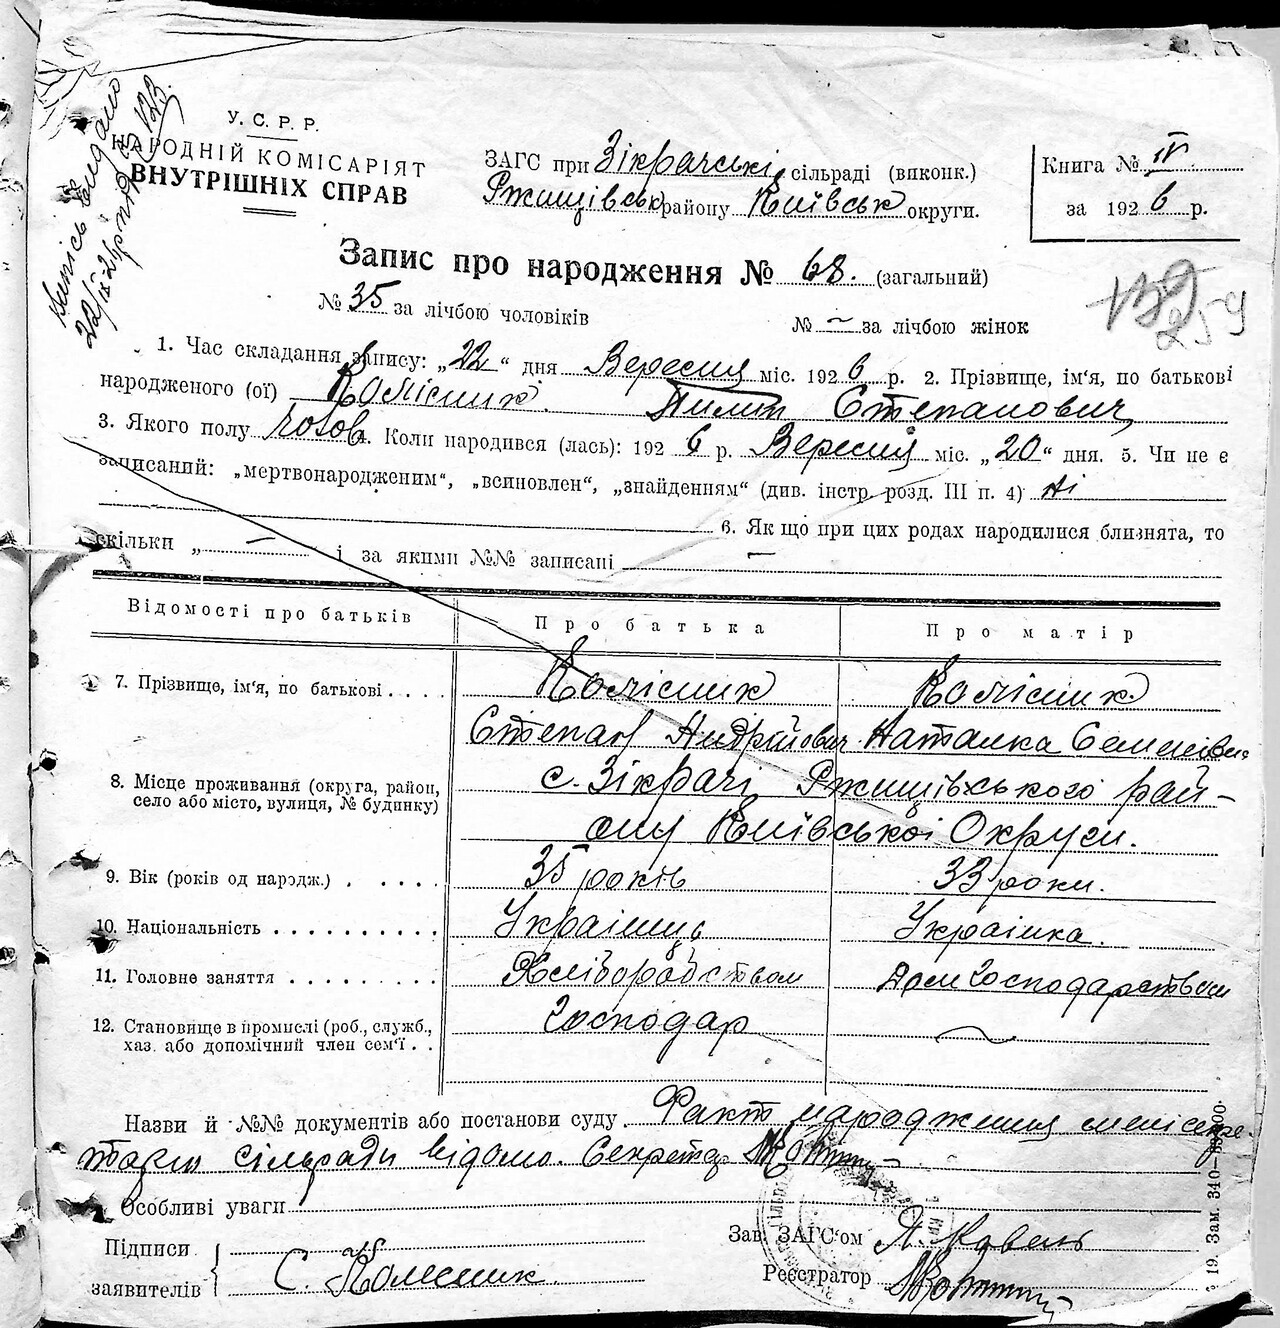 У. С. Р. Р.
НАРОДНІЙ КОМІСАРІЯТ
ВНУТРІШНІХ СПРАВ
ЗАГС при Зікрачські сільраді (виконк.)
Ржищівськ району Київськ округи.
Книга № IV
за 1926 р.
Запис про народження № 68. (загальний)
№ 35 за лічбою чоловіків
№ — за лічбою жінок
1. Час складання запису: „22“ дня Вересня міс. 1926 р. 2. Прізвище, ім'я, по батькові
народженого (ої) Колісник Пилип Степанович
3. Якого полу чолов. 4. Коли народився (лась): 1926 р. Вересня міс. „20“ дня. 5. Чи не є
записаний: „мертвонародженим“, „всиновлен“, „знайденням“ (див. інстр. розд. III п. 4) Ні
6. Як що при цих родах народилися близнята, то
скільки „ — і за якими №№ записані —
Відомості про батьків
Про батька
Про матір
7. Прізвище, ім'я, по батькові . . . .
Колісник
Колісник
Степан Андрійович
Наталка Семенівн.
8. Місце проживання (округа, район,
село або місто, вулиця, № будинку)
с. Зікрачі Ржищівського рай-
ону Київської Округи.
9. Вік (років од народж.) . . . . .
35 років
33 роки.
10. Національність . . . . . . . . . .
Українць
Українка.
11. Головне заняття . . . . . . . . .
Хліборобством
Дом господарством
12. Становище в промислі (роб., служб.,
хаз. або допомічний член сем'ї . .
Господар
—
Назви й №№ документів або постанови суду Факт народження мені секре-
тарю сільради відомо. Секретар
Особливі уваги
Підписи
заявителів
С. Колесник
Зав. ЗАГС'ом
Реєстратор
19. Зам. 340